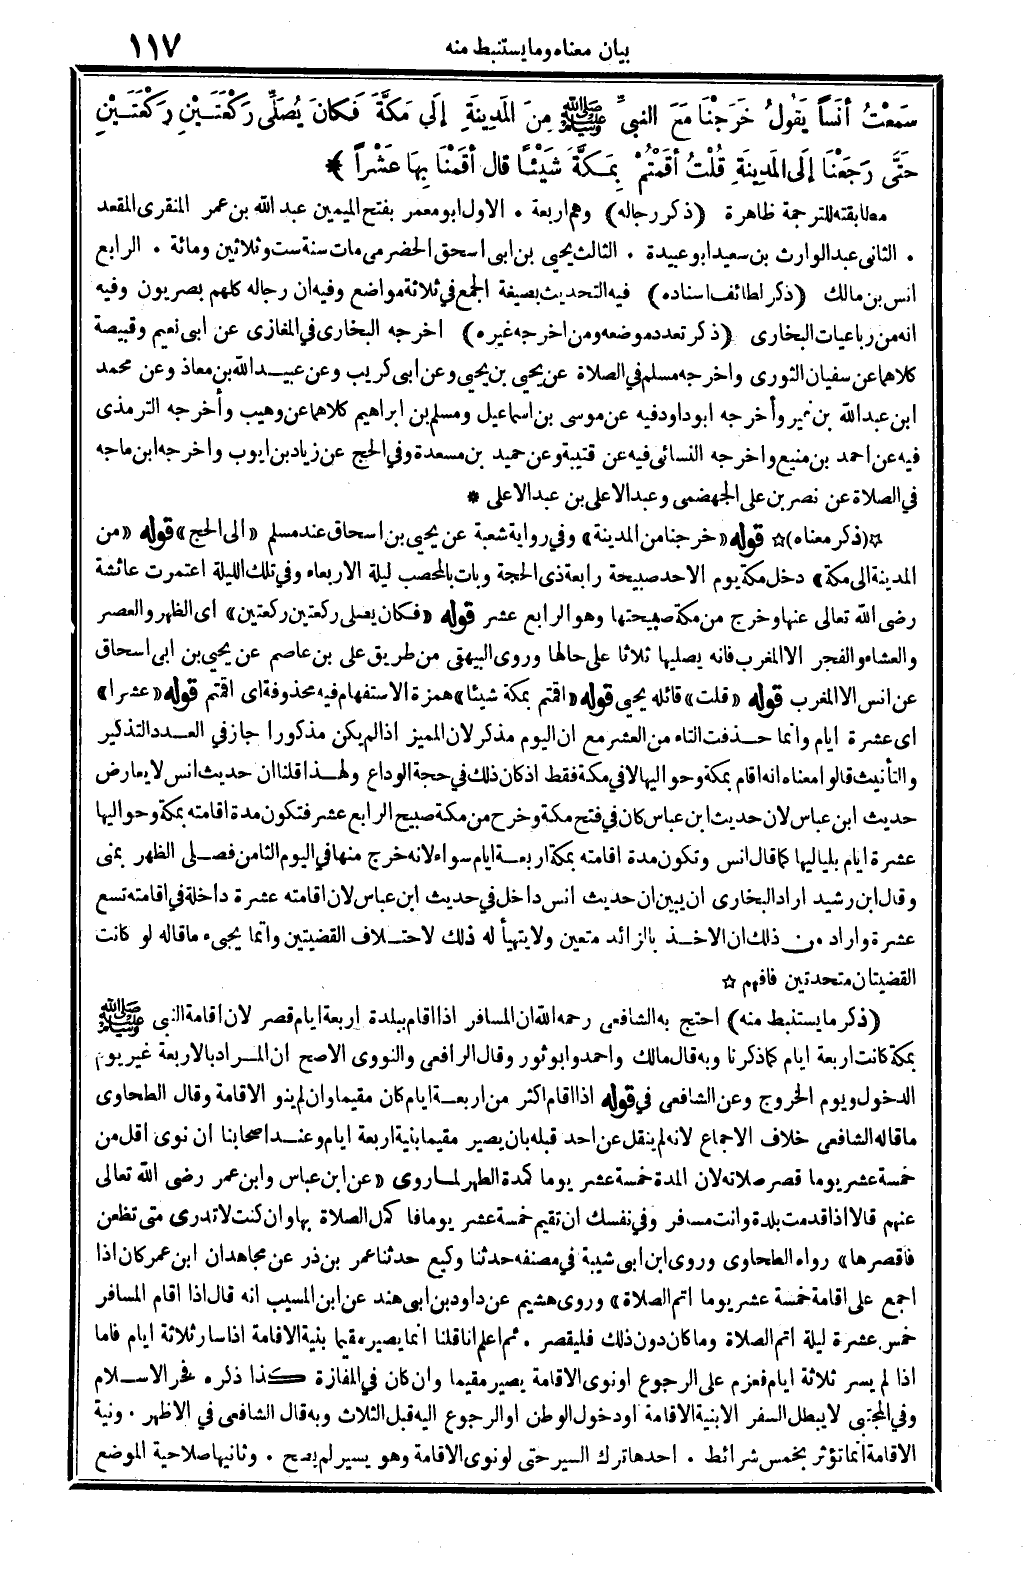 بيان معناه وما يستنبط منه
١١٧
سَمِعْتُ أنَساً يَقُولُ خَرَجْنَا مَعَ النبيِّ ﷺ مِنَ المَدِينَةِ إلَي مَكَّةَ فَكانَ يُصَلِّي رَكْعَتَيْنِ رَكْعَتَيْنِ
حَتَّى رَجَعْنَا إلَى المَدِينَةِ قُلْتُ أقَمْتُمْ بِمَكَّةَ شَيْئًا قال أقَمْنَا بِهَا عَشْراً ﴾
مطابقته للترجمة ظاهرة (ذكر رجاله) وهم اربعة . الاول ابو معمر بفتح الميمين عبد الله بن عمر المنقرى المقعد
. الثانى عبد الوارث بن سعيد ابو عبيدة . الثالث يحيى بن ابى اسحق الحضرمى مات سنة ست وثلاثين ومائة . الرابع
انس بن مالك (ذكر لطائف اسناده) فيه التحديث بصيغة الجمع في ثلاثة مواضع وفيه ان رجاله كلهم بصريون وفيه
انه من رباعيات البخارى (ذكر تعدد موضعه ومن اخرجه غيره) اخرجه البخارى في المغازى عن ابى نعيم وقبيصة
كلاهما عن سفيان الثورى واخرجه مسلم في الصلاة عن يحيى بن يحيى وعن ابى كريب وعن عبيد الله بن معاذ وعن محمد
ابن عبدالله بن نمير وأخرجه ابو داود فيه عن موسى بن اسماعيل ومسلم بن ابراهيم كلاهما عن وهيب وأخرجه الترمذى
فيه عن احمد بن منيع واخرجه النسائى فيه عن قتيبة وعن حميد بن مسعدة وفي الحج عن زياد بن ايوب واخرجه ابن ماجه
في الصلاة عن نصر بن على الجهضمى وعبد الاعلى بن عبد الاعلى *
☆(ذكر معناه)☆ قوله «خرجنا من المدينة» وفي رواية شعبة عن يحيى بن اسحاق عند مسلم «الى الحج» قوله «من
المدينة الى مكة» دخل مكة يوم الاحد صبيحة رابعة ذى الحجة وبات بالمحصب ليلة الاربعاء وفي تلك الليلة اعتمرت عائشة
رضى الله تعالى عنها وخرج من مكة صبيحتها وهو الرابع عشر قوله «فكان يصلى ركعتين ركعتين» اى الظهر والعصر
والعشاء والفجر الا المغرب فانه يصليها ثلاثا على حالها وروى البيهقى من طريق على بن عاصم عن يحيى بن ابى اسحاق
عن انس الا المغرب قوله «قلت» قائله يحيى قوله «اقمتم بمكة شيئا» همزة الاستفهام فيه محذوفة اى اقمتم قوله «عشرا»
اى عشرة ايام وانما حذفت التاء من العشر مع ان اليوم مذكر لان المميز اذا لم يكن مذكورا جاز في العدد التذكير
والتأنيث قالوا معناه انه اقام بمكة وحواليها لا في مكة فقط اذ كان ذلك في حجة الوداع ولهذا قلنا ان حديث انس لا يعارض
حديث ابن عباس لان حديث ابن عباس كان في فتح مكة وخرج من مكة صبيح الرابع عشر فتكون مدة اقامته بمكة وحواليها
عشرة ايام بلياليها كما قال انس وتكون مدة اقامته بمكة اربعة ايام سواء لانه خرج منها في اليوم الثامن فصلى الظهر بمنى
وقال ابن رشيد اراد البخارى ان يبين ان حديث انس داخل في حديث ابن عباس لان اقامته عشرة داخلة في اقامته تسع
عشرة واراد من ذلك ان الاخذ بالزائد متعين ولا يتهيأ له ذلك لاختلاف القضيتين وانما يجىء ما قاله لو كانت
القضيتان متحدتين فافهم ☆
(ذكر ما يستنبط منه) احتج به الشافعى رحمه الله ان المسافر اذا اقام ببلدة اربعة ايام قصر لان اقامة النبى ﷺ
بمكة كانت اربعة ايام كما ذكرنا وبه قال مالك واحمد وابو ثور وقال الرافعى والنووى الاصح ان المراد بالاربعة غير يوم
الدخول ويوم الخروج وعن الشافعى في قوله اذا اقام اكثر من اربعة ايام كان مقيما وان لم ينو الاقامة وقال الطحاوى
ما قاله الشافعى خلاف الاجماع لانه لم ينقل عن احد قبله بان يصير مقيما بنية اربعة ايام وعند اصحابنا ان نوى اقل من
خمسة عشر يوما قصر صلاته لان المدة خمسة عشر يوما كمدة الطهر لما روى «عن ابن عباس وابن عمر رضى الله تعالى
عنهم قالا اذا قدمت بلدة وانت مسافر وفي نفسك ان تقيم خمسة عشر يوما فاكمل الصلاة بها وان كنت لا تدرى متى تظعن
فاقصرها» رواه الطحاوى وروى ابن ابى شيبة في مصنفه حدثنا وكيع حدثنا عمر بن ذر عن مجاهد ان ابن عمر كان اذا
اجمع على اقامة خمسة عشر يوما اتم الصلاة» وروى هشيم عن داود بن ابى هند عن ابن المسيب انه قال اذا اقام المسافر
خمس عشرة ليلة اتم الصلاة وما كان دون ذلك فليقصر . ثم اعلم انا قلنا انما يصير مقيما بنية الاقامة اذا سار ثلاثة ايام فاما
اذا لم يسر ثلاثة ايام فعزم على الرجوع او نوى الاقامة يصير مقيما وان كان في المفازة كذا ذكره فخر الاسلام
وفي المجتبى لا يبطل السفر الا بنية الاقامة او دخول الوطن او الرجوع اليه قبل الثلاث وبه قال الشافعى في الاظهر . ونية
الاقامة انما تؤثر بخمس شرائط . احدها ترك السير حتى لو نوى الاقامة وهو يسير لم يصح . وثانيها صلاحية الموضع